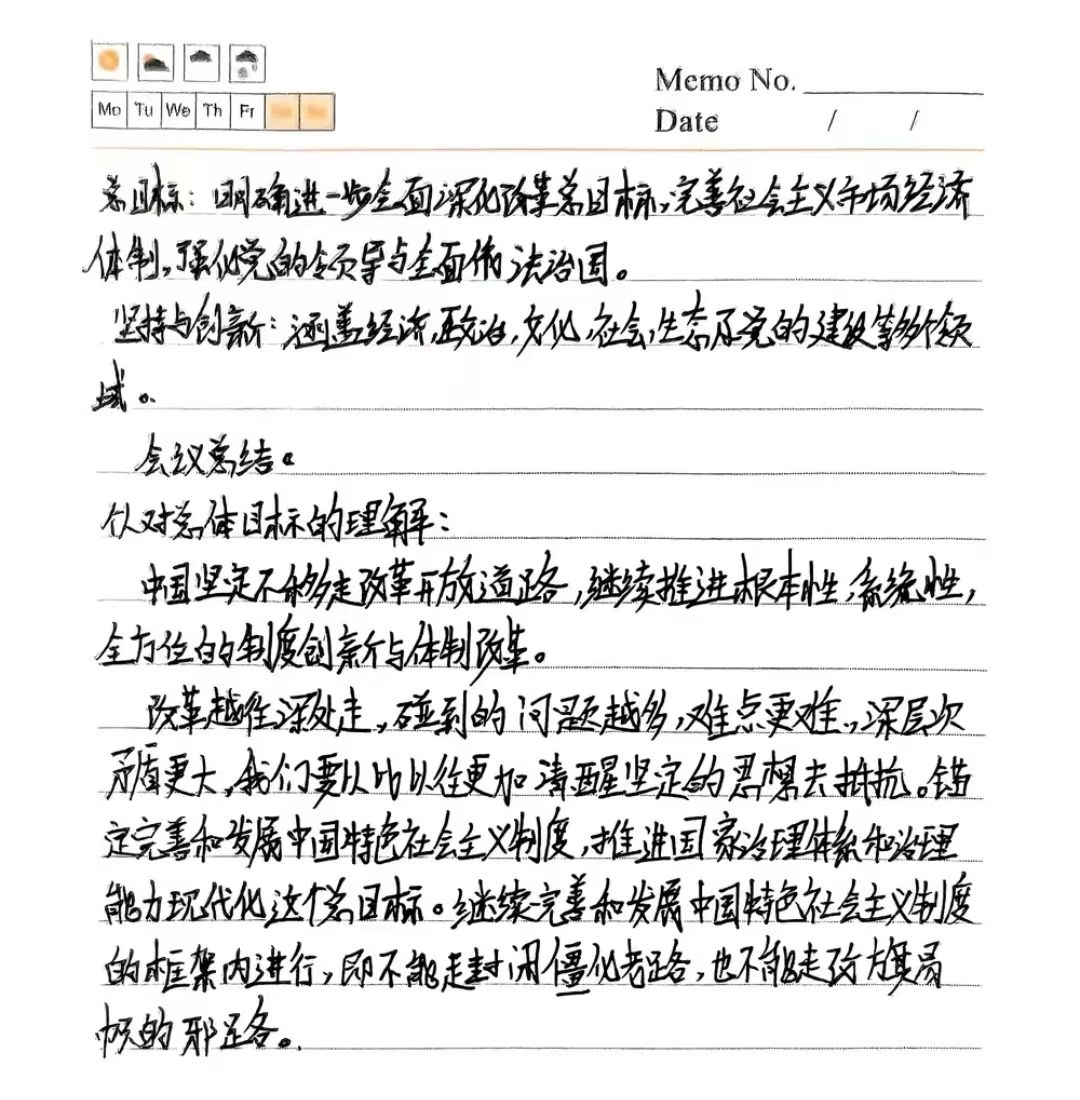 Memo No.
Date / /
Mo Tu We Th Fr Sa Su
总目标：明确进一步全面深化改革总目标，完善社会主义市场经济
体制，强化党的领导与全面依法治国。
坚持与创新：涵盖经济，政治，文化，社会，生态及党的建设等多个领
域。
会议总结。
队对总体目标的理解：
中国坚定不移走改革开放道路，继续推进根本性，系统性，
全方位的制度创新与体制改革。
改革越往深处走，碰到的问题越多，难点更难，深层次
矛盾更大，我们要以比以往更加清醒坚定的思想去抵抗。锚
定完善和发展中国特色社会主义制度，推进国家治理体系和治理
能力现代化这个总目标。继续完善和发展中国特色社会主义制度
的框架内进行，即不能走封闭僵化老路，也不能走改旗易
帜的邪路。